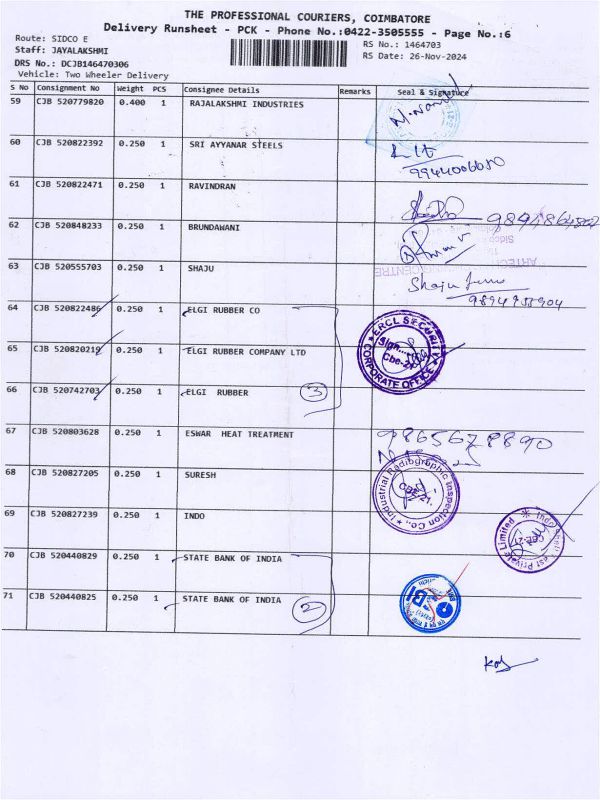 THE PROFESSIONAL COURIERS, COIMBATORE
Delivery Runsheet - PCK - Phone No.:0422-3505555 - Page No.:6
Route: SIDCO E
RS No.: 1464703
Staff: JAYALAKSHMI
RS Date: 26-Nov-2024
DRS No.: DCJB146470306
Vehicle: Two Wheeler Delivery
S No Consignment No Weight PCS Consignee Details Remarks Seal & Signature
59 CJB 520779820 0.400 1 RAJALAKSHMI INDUSTRIES
60 CJB 520822392 0.250 1 SRI AYYANAR STEELS
9944006650
61 CJB 520822471 0.250 1 RAVINDRAN
62 CJB 520848233 0.250 1 BRUNDAWANI
63 CJB 520555703 0.250 1 SHAJU
Shaju
64 CJB 520822486 0.250 1 ELGI RUBBER CO
65 CJB 520820219 0.250 1 ELGI RUBBER COMPANY LTD
ERCL SECURITY
Sign...
Cbe-21
CORPORATE OFFICE
66 CJB 520742703 0.250 1 ELGI RUBBER 3
67 CJB 520803628 0.250 1 ESWAR HEAT TREATMENT
9865678890
68 CJB 520827205 0.250 1 SURESH
Industrial Radiographic Inspection Co.,
CBE-21.
69 CJB 520827239 0.250 1 INDO
Private Limited
CBE-21
70 CJB 520440829 0.250 1 STATE BANK OF INDIA
71 CJB 520440825 0.250 1 STATE BANK OF INDIA 2
SBI